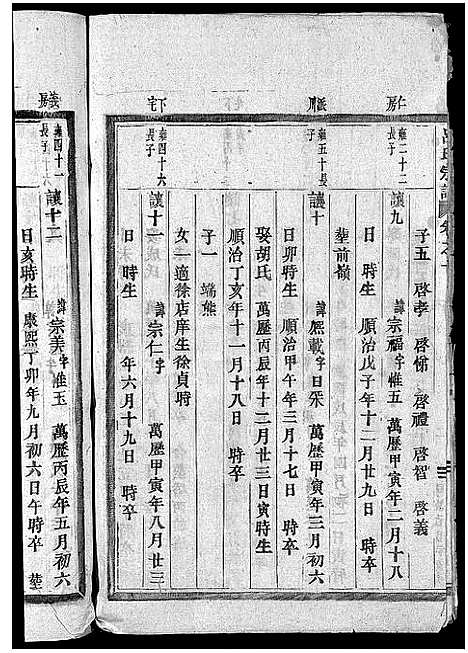 呂氏宗譜 卷之
子五 啓孝 啓悌 啓禮 啓智 啓義
仁房
雍二十二
長子
讓九 諱宗福字惟五 萬歷甲寅年二月十八
日 時生 順治戊子年十二月廿九日 時卒
塟前嶺
派川
雍五十長
子
讓十 諱熙載字日采 萬歷甲寅年三月初六
日卯時生 順治甲午年三月十七日 時卒
娶胡氏 萬歷丙辰年十二月廿三日寅時生
順治丁亥年十一月十八日 時卒
子一 端熊
女一適徐店庠生徐貞時
下宅
雍四十六
長子
讓十一 諱宗仁字 萬歷甲寅年八月廿三
日 時生 年六月十九日 時卒
義房
雍四十一
長子
讓十二 諱宗美字惟玉 萬歷丙辰年五月初六
日亥時生 康熙丁卯年九月初六日午時卒 塟